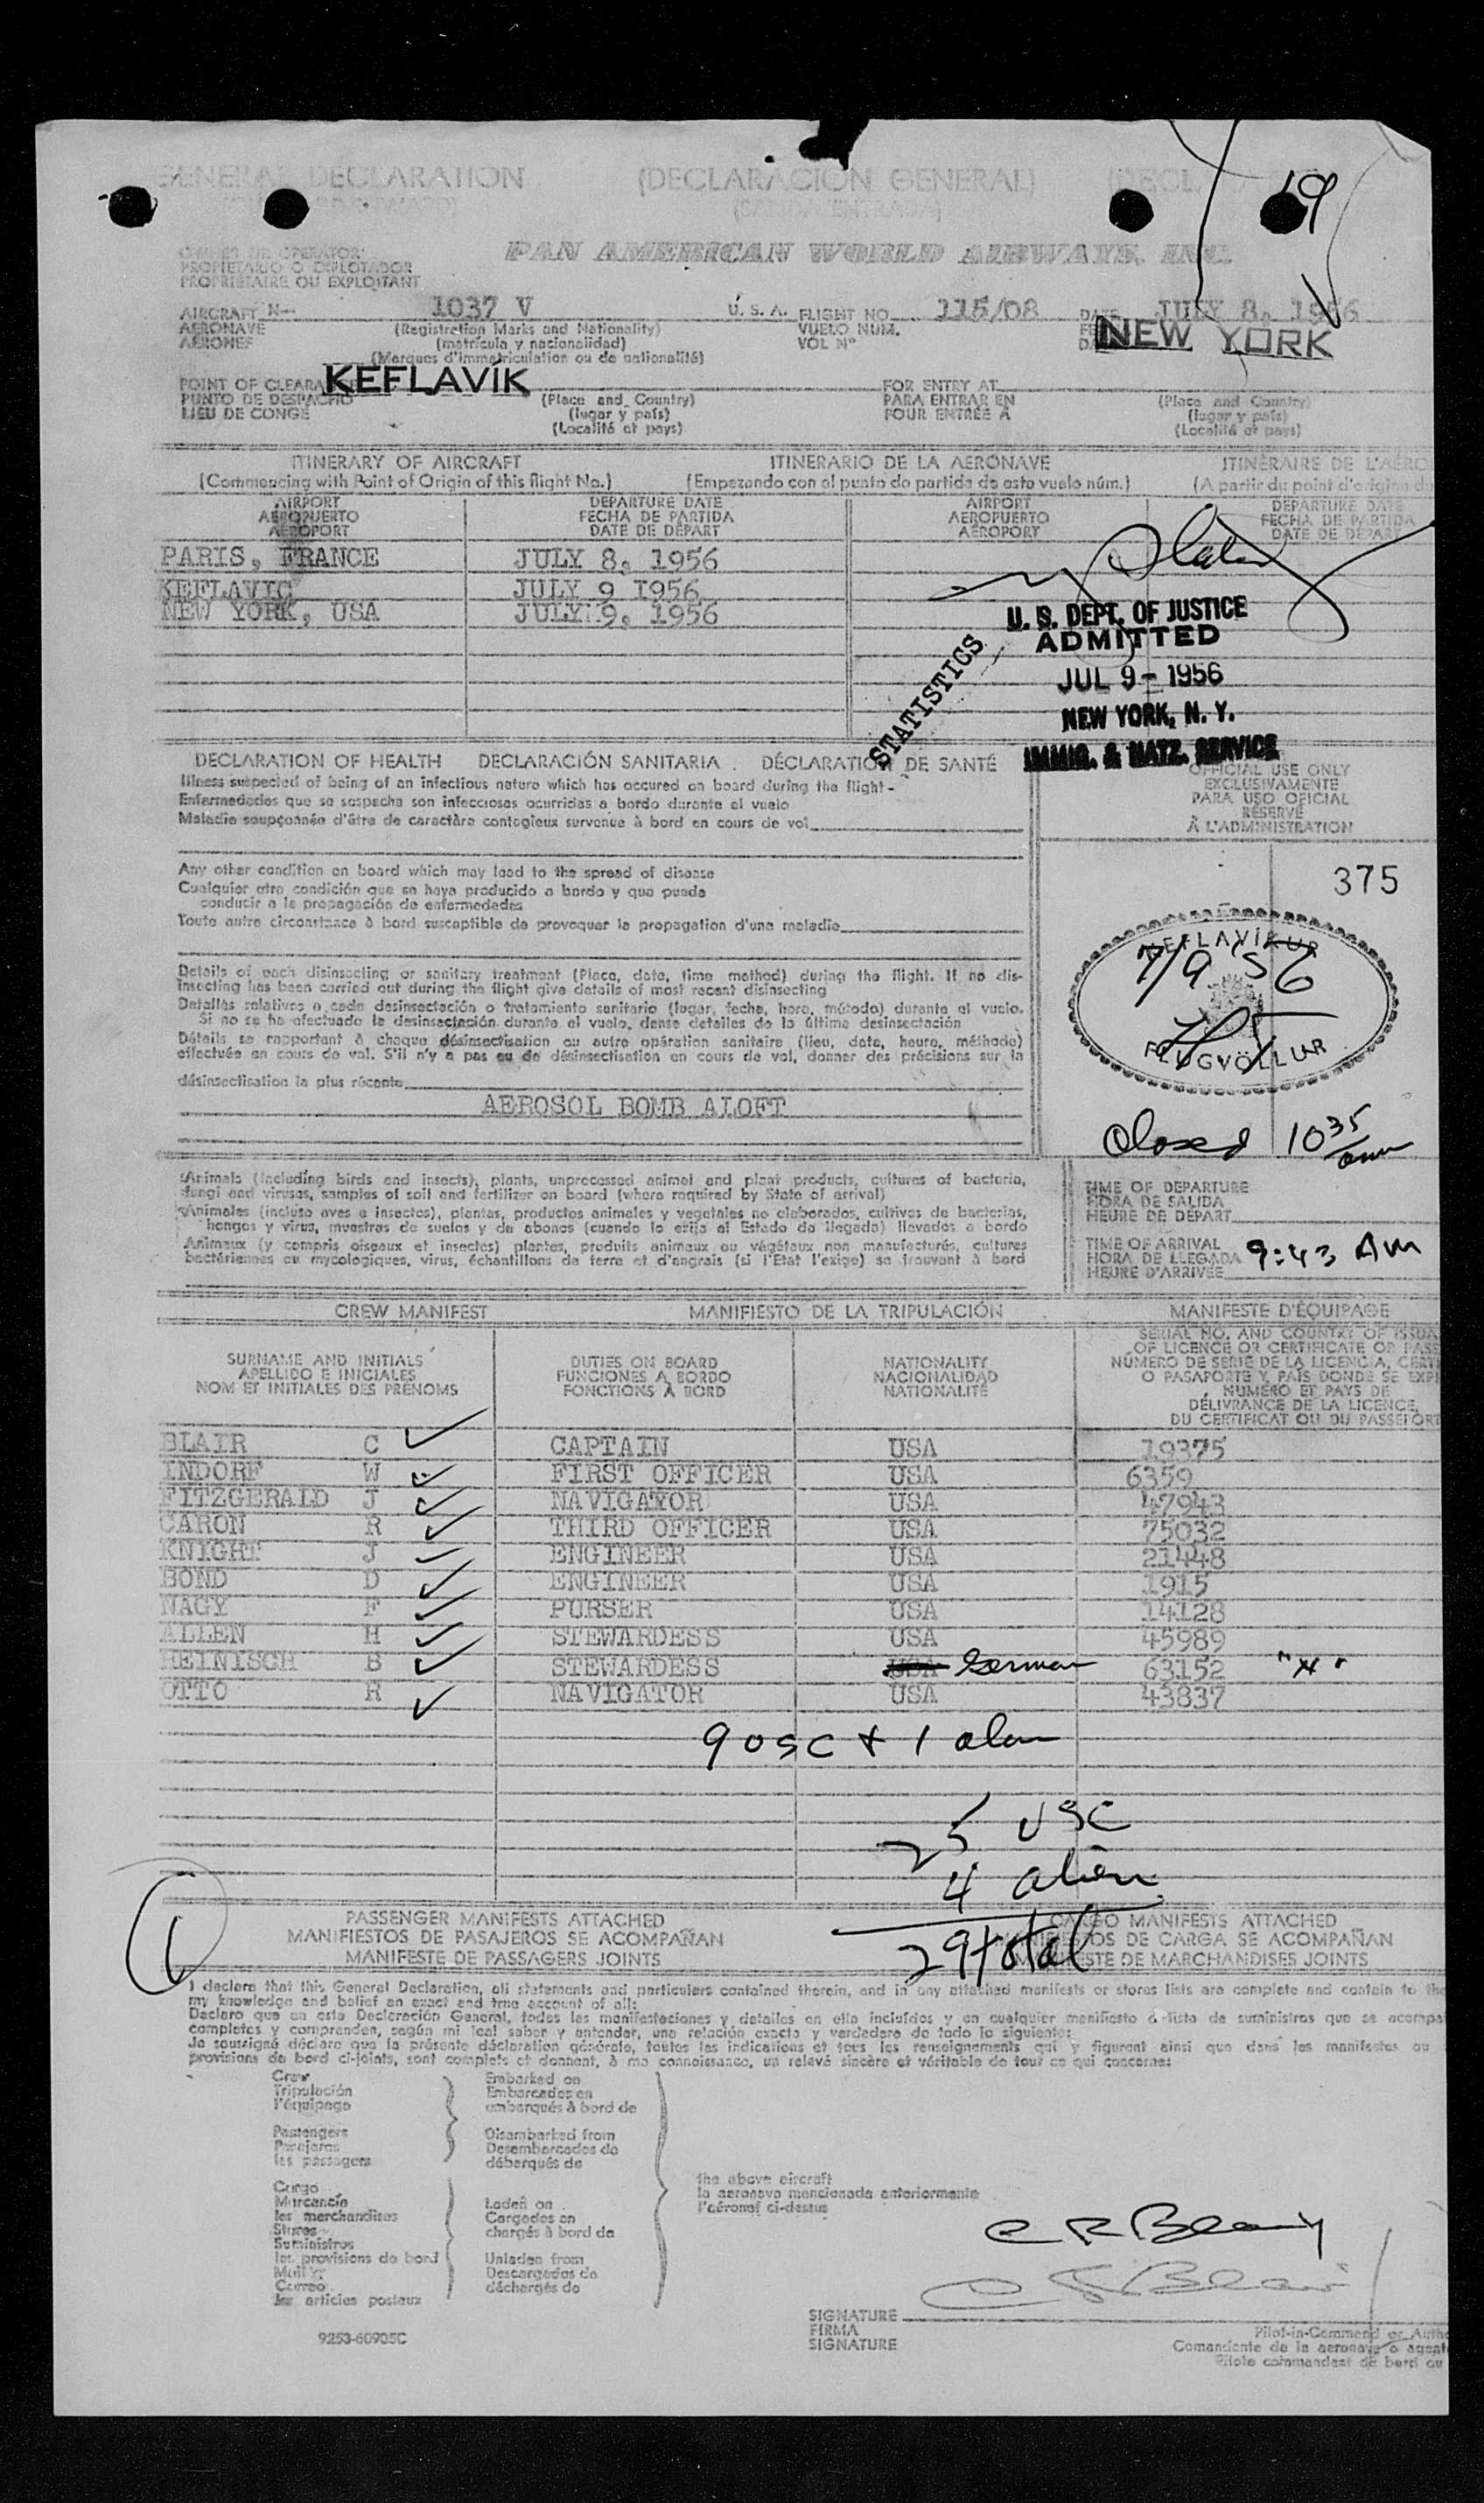 GENERAL DECLARATION (DECLARACIÓN GENERAL)
(SALIDA ENTRADA)
19
OWNER OR OPERATOR
PROPIETARIO O EXPLOTADOR
PROPRIETAIRE OU EXPLOITANT
PAN AMERICAN WORLD AIRWAYS, INC.
AIRCRAFT N— 1037 V U. S. A. FLIGHT NO. 115/08 DATE JULY 8, 1956
AERONAVE (Registration Marks and Nationality) VUELO NUM.
AÉRONEF (matrícula y nacionalidad) VOL Nº
(Marques d'immatriculation ou de nationalité)
NEW YORK
KEFLAVÍK
POINT OF CLEARANCE (Place and Country) FOR ENTRY AT (Place and Country)
PUNTO DE DESPACHO (lugar y país) PARA ENTRAR EN (lugar y país)
LIEU DE CONGÉ (Localité et pays) POUR ENTRÉE À (Localité et pays)
ITINERARY OF AIRCRAFT ITINERARIO DE LA AERONAVE ITINÉRAIRE DE L'AÉRO
(Commencing with Point of Origin of this flight No.) (Empezando con el punto de partida de este vuelo núm.) (A partir du point d'origine d
AIRPORT DEPARTURE DATE AIRPORT DEPARTURE DATE
AEROPUERTO FECHA DE PARTIDA AEROPUERTO FECHA DE PARTIDA
AÉROPORT DATE DE DÉPART AÉROPORT DATE DE DÉPART
PARIS, FRANCE JULY 8, 1956
KEFLAVIC JULY 9 1956
NEW YORK, USA JULY 9, 1956
U. S. DEPT. OF JUSTICE
ADMITTED
JUL 9 - 1956
NEW YORK, N. Y.
IMMIG. & NATZ. SERVICE
STATISTICS
DECLARATION OF HEALTH DECLARACIÓN SANITARIA DÉCLARATION DE SANTÉ
Illness suspected of being of an infectious nature which has occured on board during the flight -
Enfermedades que se sospecha son infecciosas ocurridas a bordo durante el vuelo
Maladie soupçonnée d'être de caractère contagieux survenue à bord en cours de vol
OFFICIAL USE ONLY
EXCLUSIVAMENTE
PARA USO OFICIAL
RÉSERVÉ
À L'ADMINISTRATION
Any other condition on board which may lead to the spread of disease
Cualquier otra condición que se haya producido a bordo y que pueda
conducir a la propagación de enfermedades
Toute autre circonstance à bord susceptible de provoquer la propagation d'une maladie
375
KEFLAVÍKUR
7/9 56
FLUGVÖLLUR
Details of each disinsecting or sanitary treatment (Place, date, time method) during the flight. If no dis-
insecting has been carried out during the flight give details of most recent disinsecting
Detalles relativos a cada desinsectación o tratamiento sanitario (lugar, fecha, hora, método) durante el vuelo.
Si no se ha efectuado la desinsectación durante el vuelo, dense detalles de la última desinsectación
Détails se rapportant à chaque désinsectisation ou autre opération sanitaire (lieu, date, heure, méthode)
effectuée en cours de vol. S'il n'y a pas eu de désinsectisation en cours de vol, donner des précisions sur la
désinsectisation la plus récente
AEROSOL BOMB ALOFT
Closed 10 35 am
Animals (including birds and insects), plants, unprocessed animal and plant products, cultures of bacteria,
fungi and viruses, samples of soil and fertilizer on board (where required by State of arrival)
Animales (incluso aves e insectos), plantas, productos animales y vegetales no elaborados, cultivos de bacterias,
hongos y virus, muestras de suelos y de abonos (cuando lo exija el Estado de llegada) llevados a bordo
Animaux (y compris oiseaux et insectes) plantes, produits animaux ou végétaux non manufacturés, cultures
bactériennes ou mycologiques, virus, échantillons de terre et d'engrais (si l'Etat l'exige) se trouvant à bord
TIME OF DEPARTURE
HORA DE SALIDA
HEURE DE DÉPART
TIME OF ARRIVAL
HORA DE LLEGADA 9:43 AM
HEURE D'ARRIVÉE
CREW MANIFEST MANIFIESTO DE LA TRIPULACIÓN MANIFESTE D'ÉQUIPAGE
SURNAME AND INITIALS DUTIES ON BOARD NATIONALITY
APELLIDO E INICIALES FUNCIONES A BORDO NACIONALIDAD
NOM ET INITIALES DES PRÉNOMS FONCTIONS À BORD NATIONALITÉ
SERIAL NO. AND COUNTRY OF ISSUA
OF LICENCE OR CERTIFICATE OR PASS
NÚMERO DE SERIE DE LA LICENCIA, CERTI
O PASAPORTE Y PAÍS DONDE SE EXPI
NUMÉRO ET PAYS DE
DÉLIVRANCE DE LA LICENCE,
DU CERTIFICAT OU DU PASSEPORT
BLAIR C CAPTAIN USA 19375
INDORF W FIRST OFFICER USA 6359
FITZGERALD J NAVIGATOR USA 47943
CARON R THIRD OFFICER USA 75032
KNIGHT J ENGINEER USA 21448
BOND D ENGINEER USA 1915
NAGY F PURSER USA 14128
ALLEN H STEWARDESS USA 45989
HEINISCH B STEWARDESS USA German 63152 "X"
OTTO R NAVIGATOR USA 43837
9 USC + 1 alien
25 USC
4 alien
29 total
1
PASSENGER MANIFESTS ATTACHED CARGO MANIFESTS ATTACHED
MANIFIESTOS DE PASAJEROS SE ACOMPAÑAN MANIFIESTOS DE CARGA SE ACOMPAÑAN
MANIFESTE DE PASSAGERS JOINTS MANIFESTE DE MARCHANDISES JOINTS
I declare that this General Declaration, all statements and particulars contained therein, and in any attached manifests or stores lists are complete and contain to the
my knowledge and belief an exact and true account of all:
Declaro que en esta Declaración General, todas las manifestaciones y detalles en ella incluídos y en cualquier manifiesto o lista de suministros que se acompa
completos y comprenden, según mi leal saber y entender, una relación exacta y verdadera de todo lo siguiente:
Je soussigné déclare que la présente déclaration générale, toutes les indications et tous les renseignements qui y figurent ainsi que dans les manifestes ou
provisions de bord ci-joints, sont complets et donnent, à ma connaissance, un relevé sincère et véritable de tout ce qui concerne:
Crew Embarked on
Tripulación Embarcados en
l'équipage embarqués à bord de
Passengers Disembarked from
Pasajeros Desembarcados de
les passagers débarqués de
the above aircraft
la aeronave mencionada anteriormente
l'aéronef ci-dessus
Cargo
Mercancía Laden on
les marchandises Cargados en
Stores chargés à bord de
Suministros
les provisions de bord Unladen from
Mail Descargados de
Correo déchargés de
les articles postaux
C R Blair
C R Blair
SIGNATURE
FIRMA
SIGNATURE
Pilot-in-Command or Autho
Comandante de la aeronave o agent
Pilote commandant de bord ou
9253-60905C